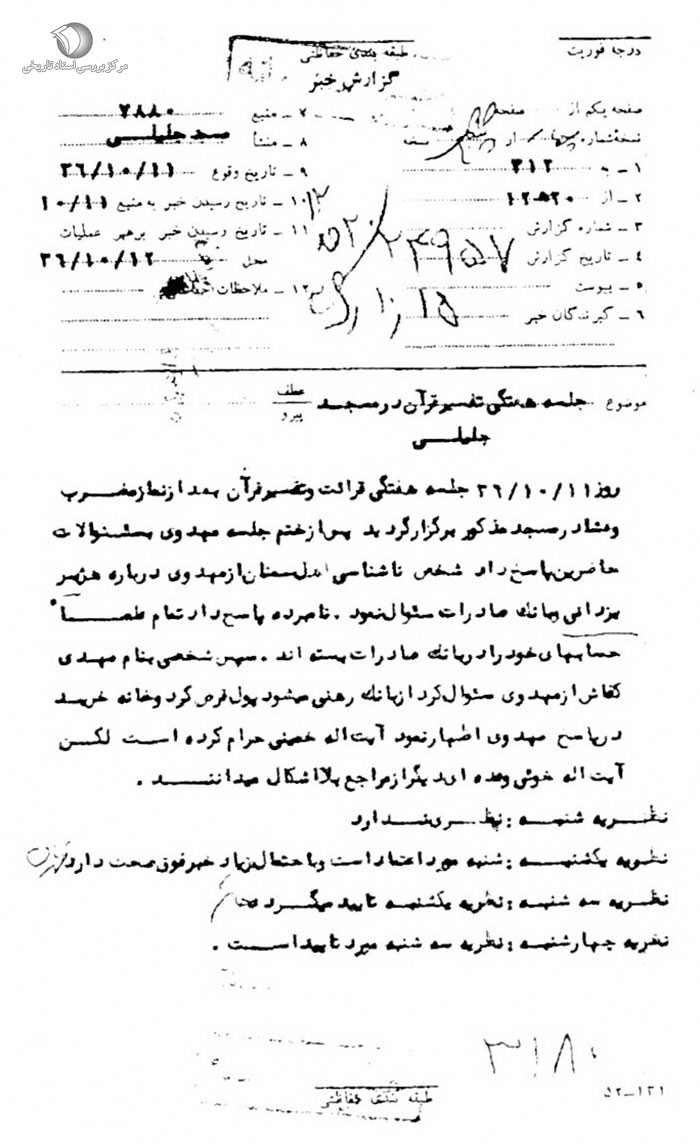 مرکز بررسی اسناد تاریخی
درجه فوریت
طبقه بندی حفاظتی
گزارش خبر
صفحه یکم از صفحه
نسخه شماره از نسخه
۱ ـ به ۳۱۲
۲ ـ از ۱۲ه۲۰
۳ ـ شماره گزارش
۴ ـ تاریخ گزارش
۵ ـ پیوست
۶ ـ گیرندگان خبر
۷ ـ منبع ۷۸۸۰
۸ ـ منشأ مسجد جلیلی
۹ ـ تاریخ وقوع ۳۶/۱۰/۱۱
۱۰ ـ تاریخ رسیدن خبر به منبع ۱۰/۱۱
۱۱ ـ تاریخ رسیدن خبر برهبر عملیات
محل ۳۶/۱۰/۱۲
۱۲ ـ ملاحظات حفاظتی
موضوع جلسه هفتگی تفسیر قرآن در مسجد عطف پیرو
جلیلی
روز ۳۶/۱۰/۱۱ جلسه هفتگی قرائت و تفسیر قرآن بعد از نماز مغرب
وعشاء در مسجد مذکور برگزار گردید پس از ختم جلسه مهدوی بسئوالات
حاضرین پاسخ داد شخص ناشناسی اهل سمنان از مهدوی درباره هژبر
یزدانی وبانك صادرات سئوال نمود . نامبرده پاسخ داد تمام علما
حسابهای خود را در بانك صادرات بسته اند . سپس شخصی بنام مهدی
کفاش از مهدوی سئوال کرد از بانك رهنی میشود پول قرض کرد وخانه خرید
در پاسخ مهدوی اظهار نمود آیت اله خمینی حرام کرده است لکن
آیت اله خوئی وعده ای دیگر از مراجع بلا اشکال میدانند .
نظریه شنبه : نظری ندارد
نظریه یکشنبه : شنبه مورد اعتماد است و با احتمال زیاد خبر فوق صحت دارد
نظریه سه شنبه : نظریه یکشنبه تایید میگردد
نظریه چهارشنبه : نظریه سه شنبه مورد تایید است .
۳۱۸۰
۵۲ـ۱۳۱
طبقه بندی حفاظتی